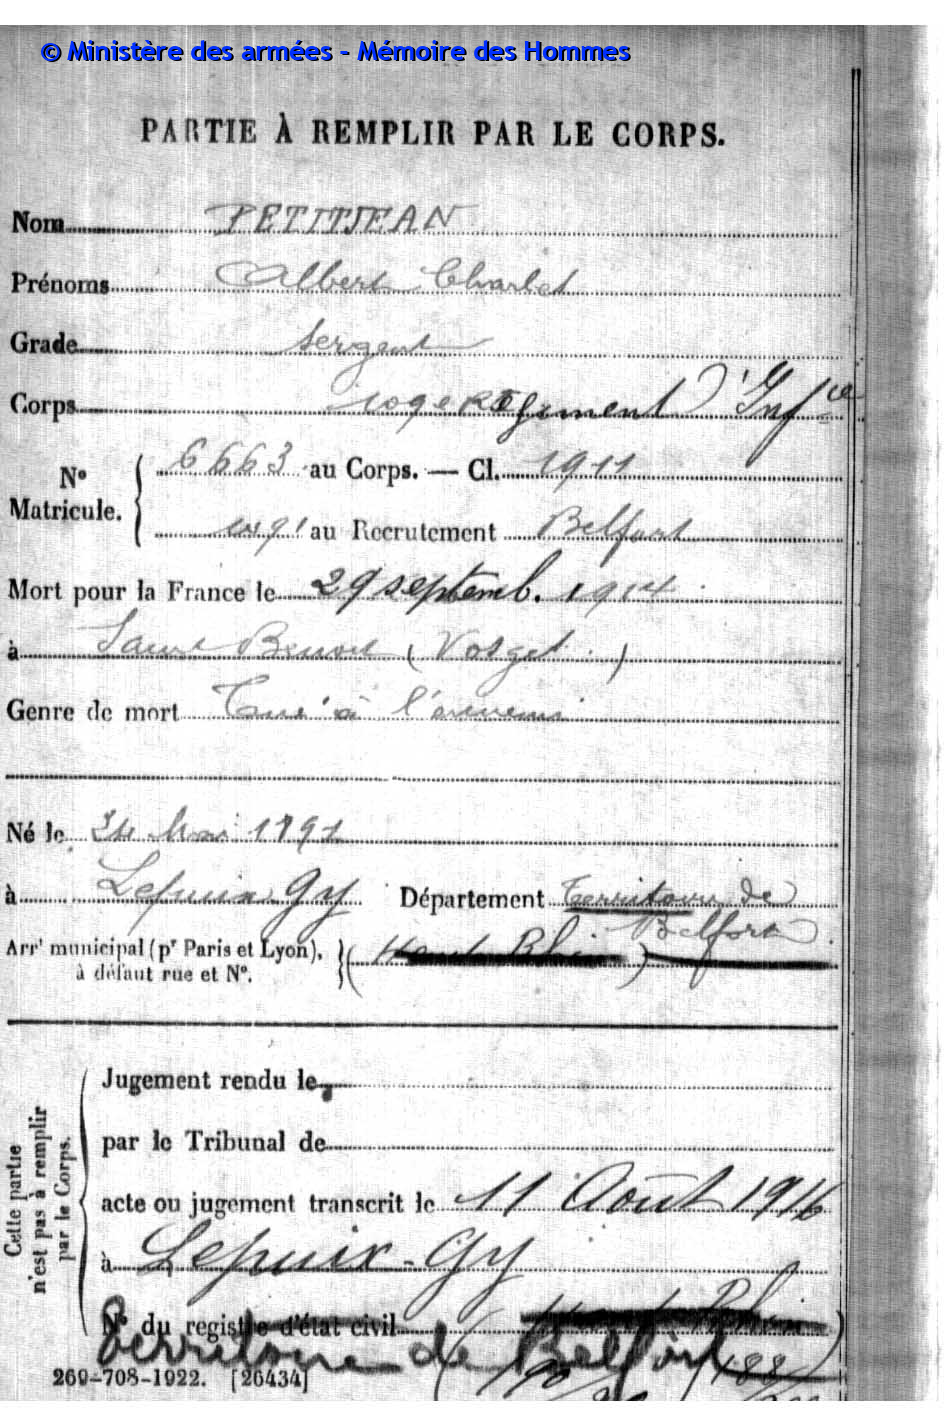 © Ministère des armées - Mémoire des Hommes
PARTIE À REMPLIR PAR LE CORPS.
Nom PETITJEAN
Prénoms Albert Charles
Grade Sergent
Corps 109e Régiment d'Infie
No Matricule. 6663 au Corps. — Cl. 1911
au Recrutement Belfort
Mort pour la France le 29 septemb. 1914
à Saint Benoit (Vosges.)
Genre de mort Tué à l'ennemi
Né le Mai 1891
à Lepuix Gy Département Territoire de
Belfort
Arrt municipal (pr Paris et Lyon),
à défaut rue et No. (Haut Rhin)
Cette partie
n'est pas à remplir
par le Corps.
Jugement rendu le
par le Tribunal de
acte ou jugement transcrit le 11 Août 1916
à Lepuix-Gy
No du registre d'état civil Rhin)
Territoire de Belfort
269-708-1922. [26434]